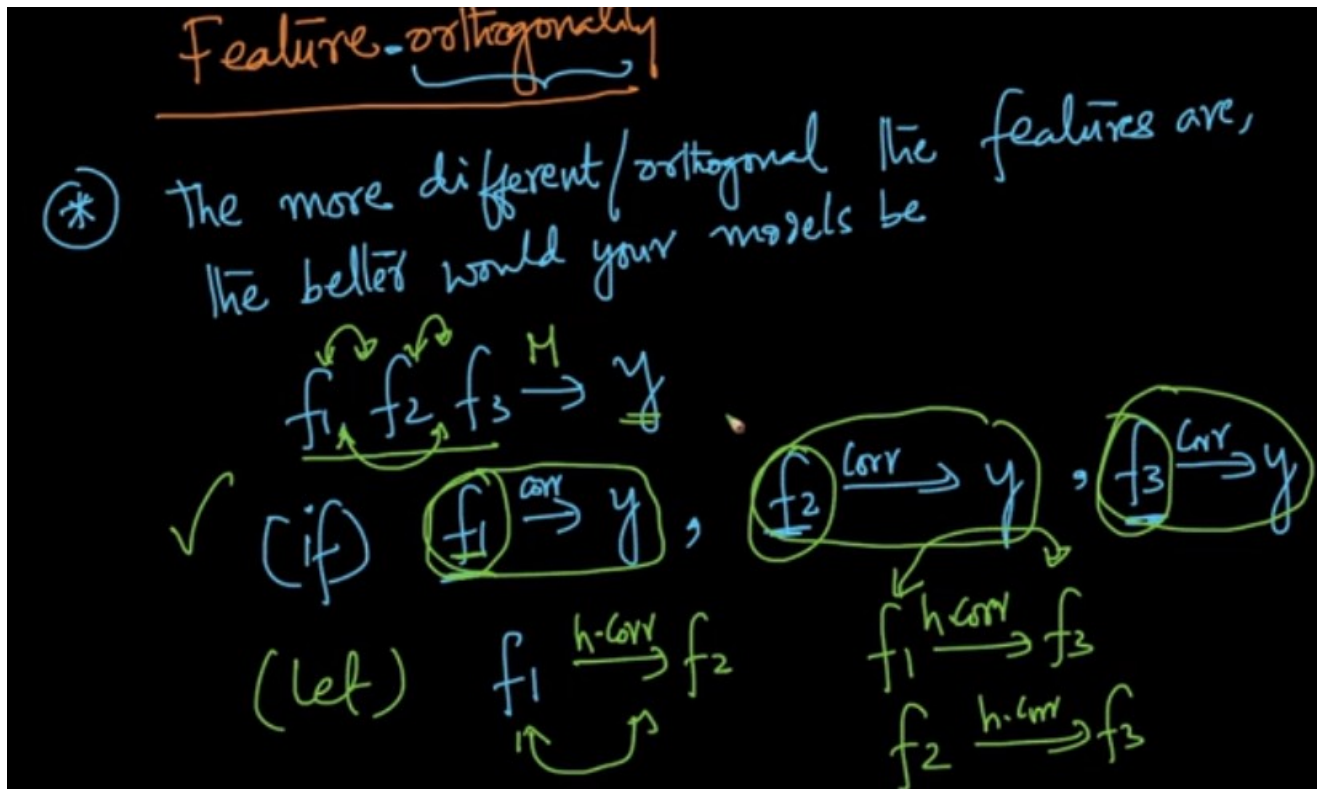 Feature-orthogonality
* The more different/orthogonal the features are,
the better would your models be
f1 f2 f3 M → y
(if) f1 corr → y, f2 corr → y, f3 corr → y
(let) f1 h-corr → f2 f1 h-corr → f3
f2 h-corr → f3